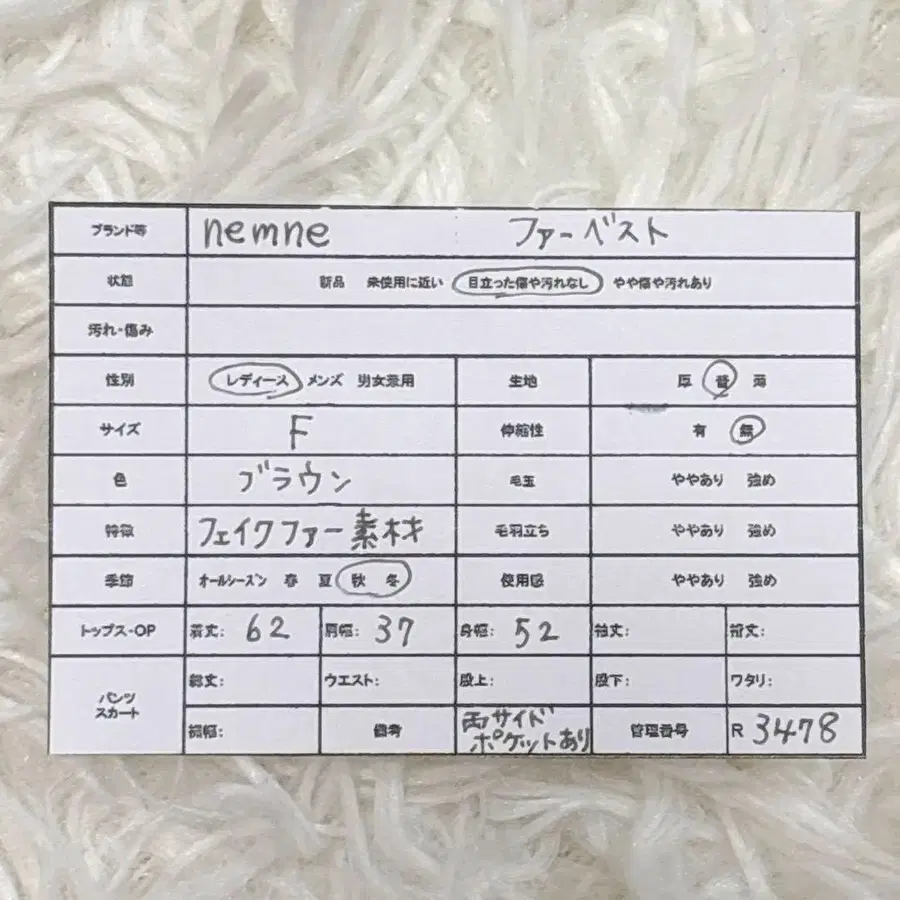 ブランド等 nemne ファーベスト
状態 新品 未使用に近い 目立った傷や汚れなし やや傷や汚れあり
汚れ・傷み
性別 レディース メンズ 男女兼用 生地 厚 普 薄
サイズ F 伸縮性 有 無
色 ブラウン 毛玉 ややあり 強め
特徴 フェイクファー素材 毛羽立ち ややあり 強め
季節 オールシーズン 春 夏 秋 冬 使用感 ややあり 強め
トップス・OP 着丈: 62 肩幅: 37 身幅: 52 袖丈: 裄丈:
パンツ スカート 総丈: ウエスト: 股上: 股下: ワタリ:
裾幅: 備考 両サイド ポケットあり 管理番号 R 3478